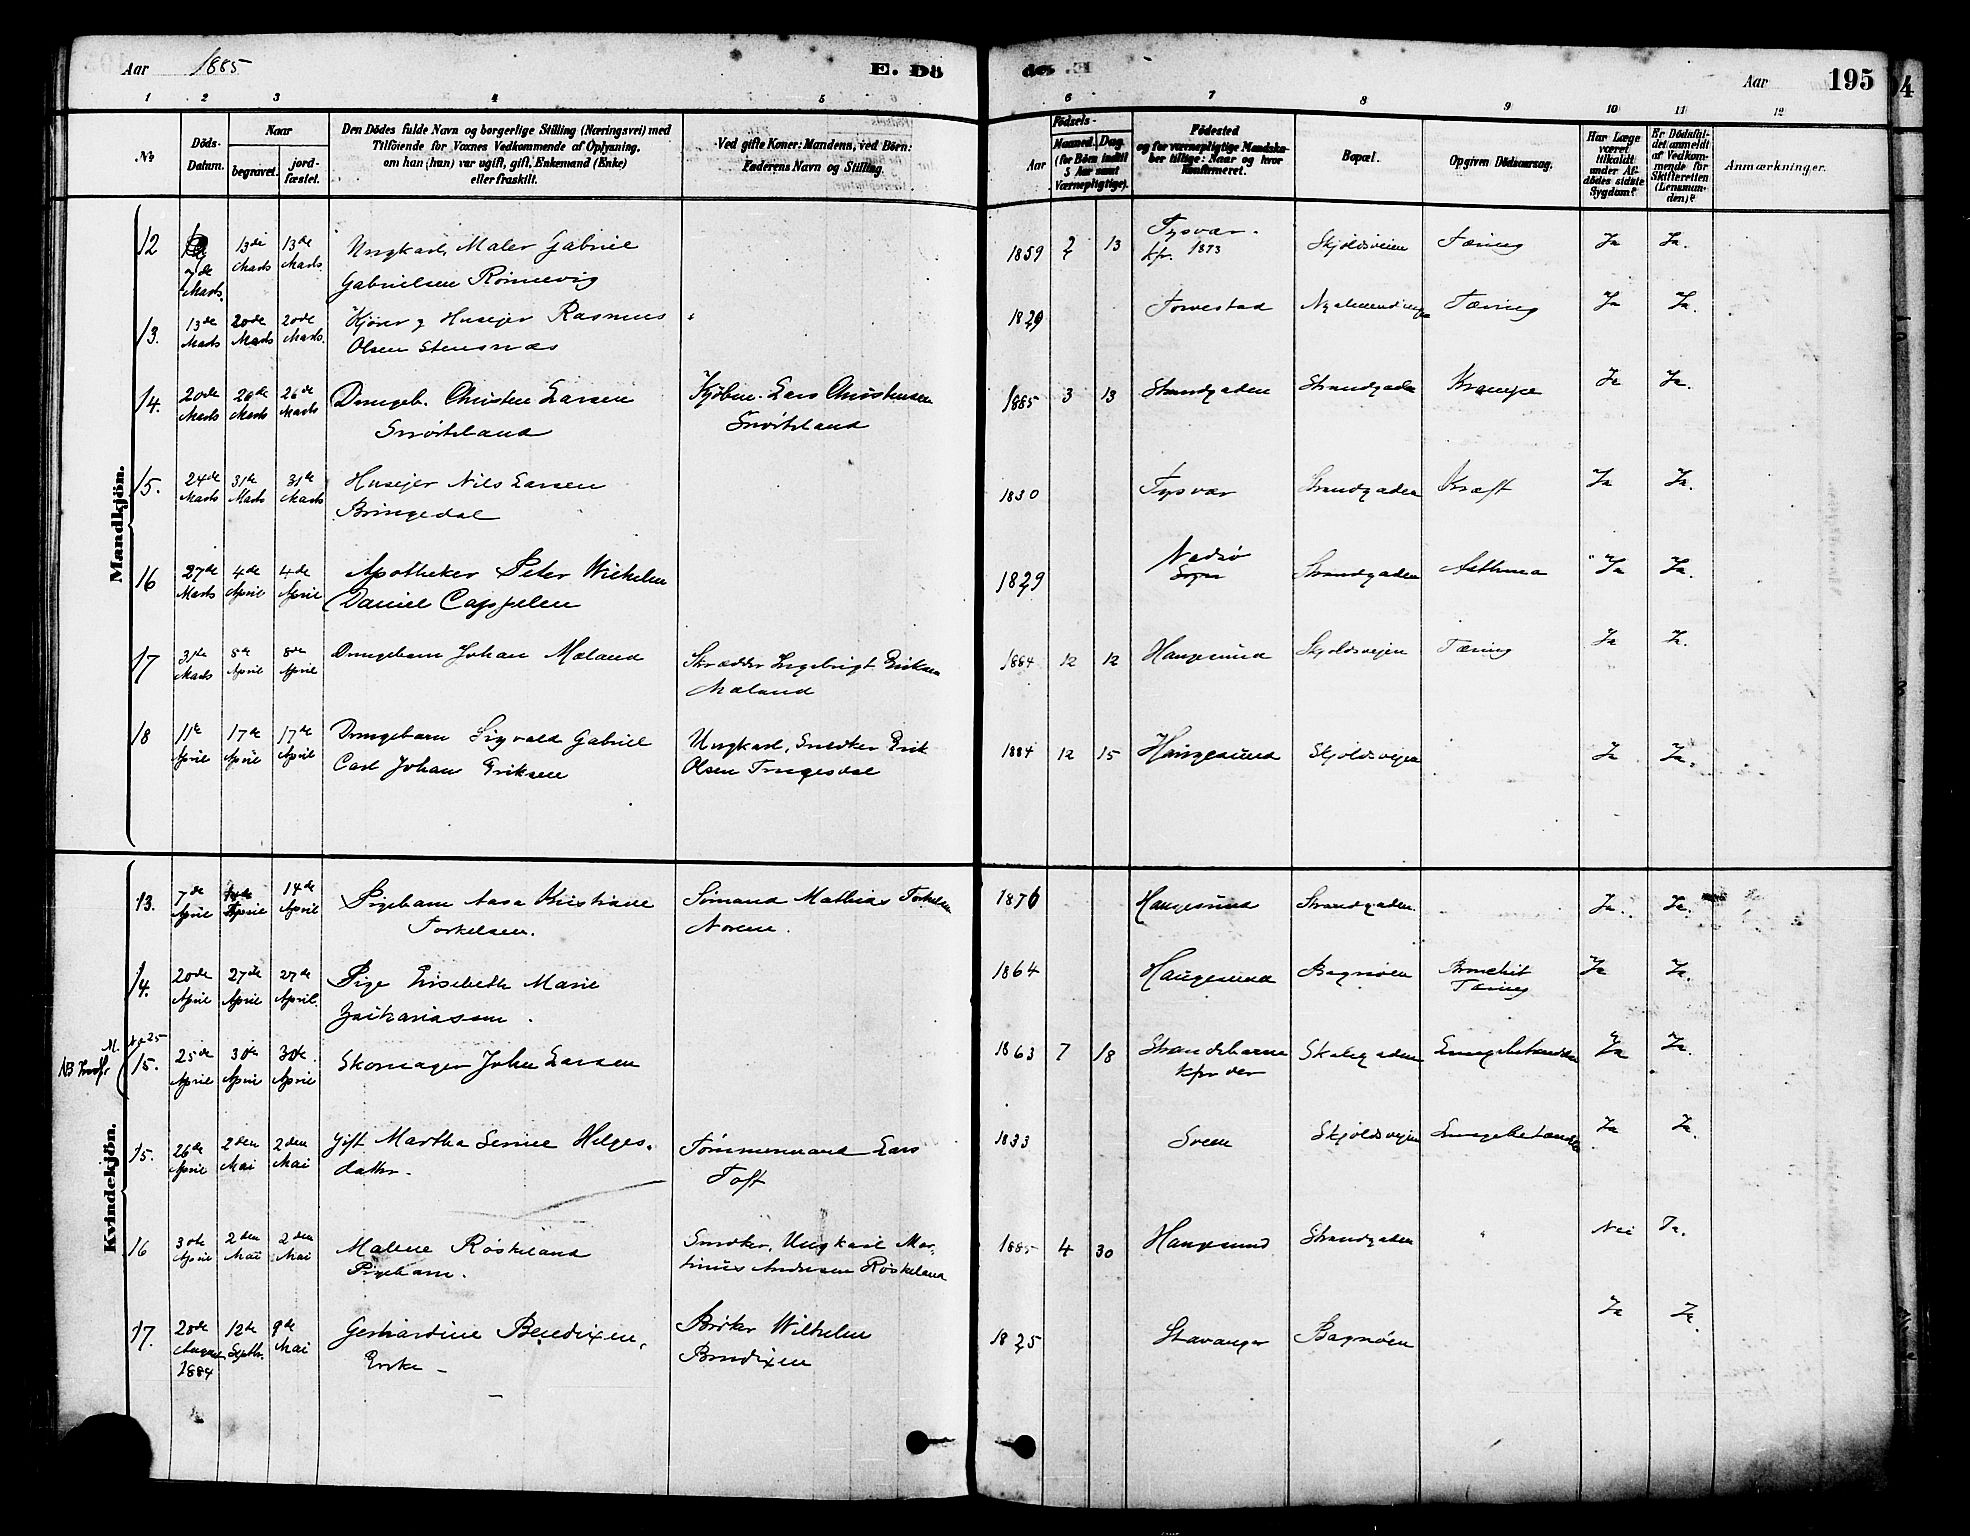 Aar 1885 E. Dö
1 2 3 4 5
No Döds-Datum. Naar begravet. jordfæstet.
Den Dödes fulde Navn og borgerlige Stilling (Næringsvei) med
Tilföiende for Voxnes Vedkommende af Oplysning,
om han (hun) var ugift, gift, Enkemand (Enke)
eller fraskilt.
Ved gifte Koner: Mandens, ved Börn:
Faderens Navn og Stilling.
Mandkjön.
12 7de Marts 13de Marts 13de Marts Ungkarl, Maler Gabriel
Gabrielsen Rønnevig
13. 13de Marts 20de Marts 20de Marts Kjører og Husejer Rasmus
Olsen Stensnæs
14. 20de Marts 26de Marts 26de Marts Drengeb. Christen Larsen Kjøbm. Lars Christensen
Smørteland Smørteland
15. 24de Marts 31te Marts 31te Marts Husejer Nils Larsen
Bringedal
16 27de Marts 4de April 4de April Apotheker Peter Wilhelm
Daniel Cappelen
17 31te Marts 8de April 8de April Drengebarn Johan Mæland Skrædder Ingebrigt Eriksen
Mæland
18 11te April 17de April 17de April Drengebarn Sigvald Gabriel Ungkarl, Snedker Erik
Carl Johan Eriksen Olsen
Kvindekjön.
13. 7de April April 14de April Pigebarn Aasa Kristiane Sømand Mathias Torkelsen
Torkelsen. Norem.
14. 20de April 27de April 27de April Pige Elisebeth Marie
Zachariassen.
NB M. No 25
15. 25de April 30de April 30de April Skomager John Larsen
15. 26de April 2den Mai 2den Mai Gift Martha Serine Helges- Tømmermand Lars
datter. Toft
16 30te April 2den Mai 2den Mai Malene Røskeland Snedker, Ungkarl Mar-
Pigebarn. tinus Andersen Røskeland
17. 28de August 1884 12te Septbr. 9de Mai Gerhardine Bendixen, Brøker Wilhelm
Enke - Bendixen
de. E. Aar 195
6 7 8 9 10 11 12
Aar Födsels-
Maaned. Dag.
(for Börn indtil
5 Aar samt
Værnepligtige).
Födested
og for værnepligtige Mandska-
ber tillige: Naar og hvor
Konfirmeret.
Bopæl. Opgiven Dödsaarsag.
Har Læge
været
tilkaldt
under Af-
dödes sidste
Sygdom?
Er Dödsfal-
det anmeldt
af Vedkom-
mende for
Skifteretten
(Lensman-
den)?
Anmærkninger.
1859 2 13 Tysvær. Skjoldsveien Tæring Ja Ja.
kfr. 1873
1829 Torvestad Tæring Ja Ja.
1885 3 13 Strandgaden Strandgaden Krampe Ja Ja.
1830 Tysvær Strandgaden Kræft Ja Ja.
1829 Strandgaden Asthma Ja Ja.
1884 12 12 Haugesund Skjoldsvejen Tæring Ja Ja.
1884 12 15 Haugesund Skjoldsvejen Ja Ja.
1876 Haugesund Strandgaden. Ja. Ja.
1864 Haugesund Bagnøen Bronchit Ja Ja.
Tæring
1863 7 18 Strandebarm Skolegaden Lungebetændelse Ja Ja.
kfr der
1833 Sveen Skjoldsvejen Lungebetændelse Ja Ja.
1885 4 30 Haugesund Strandgaden " Nei Ja.
1825 Stavanger Bagnøen Ja Ja.